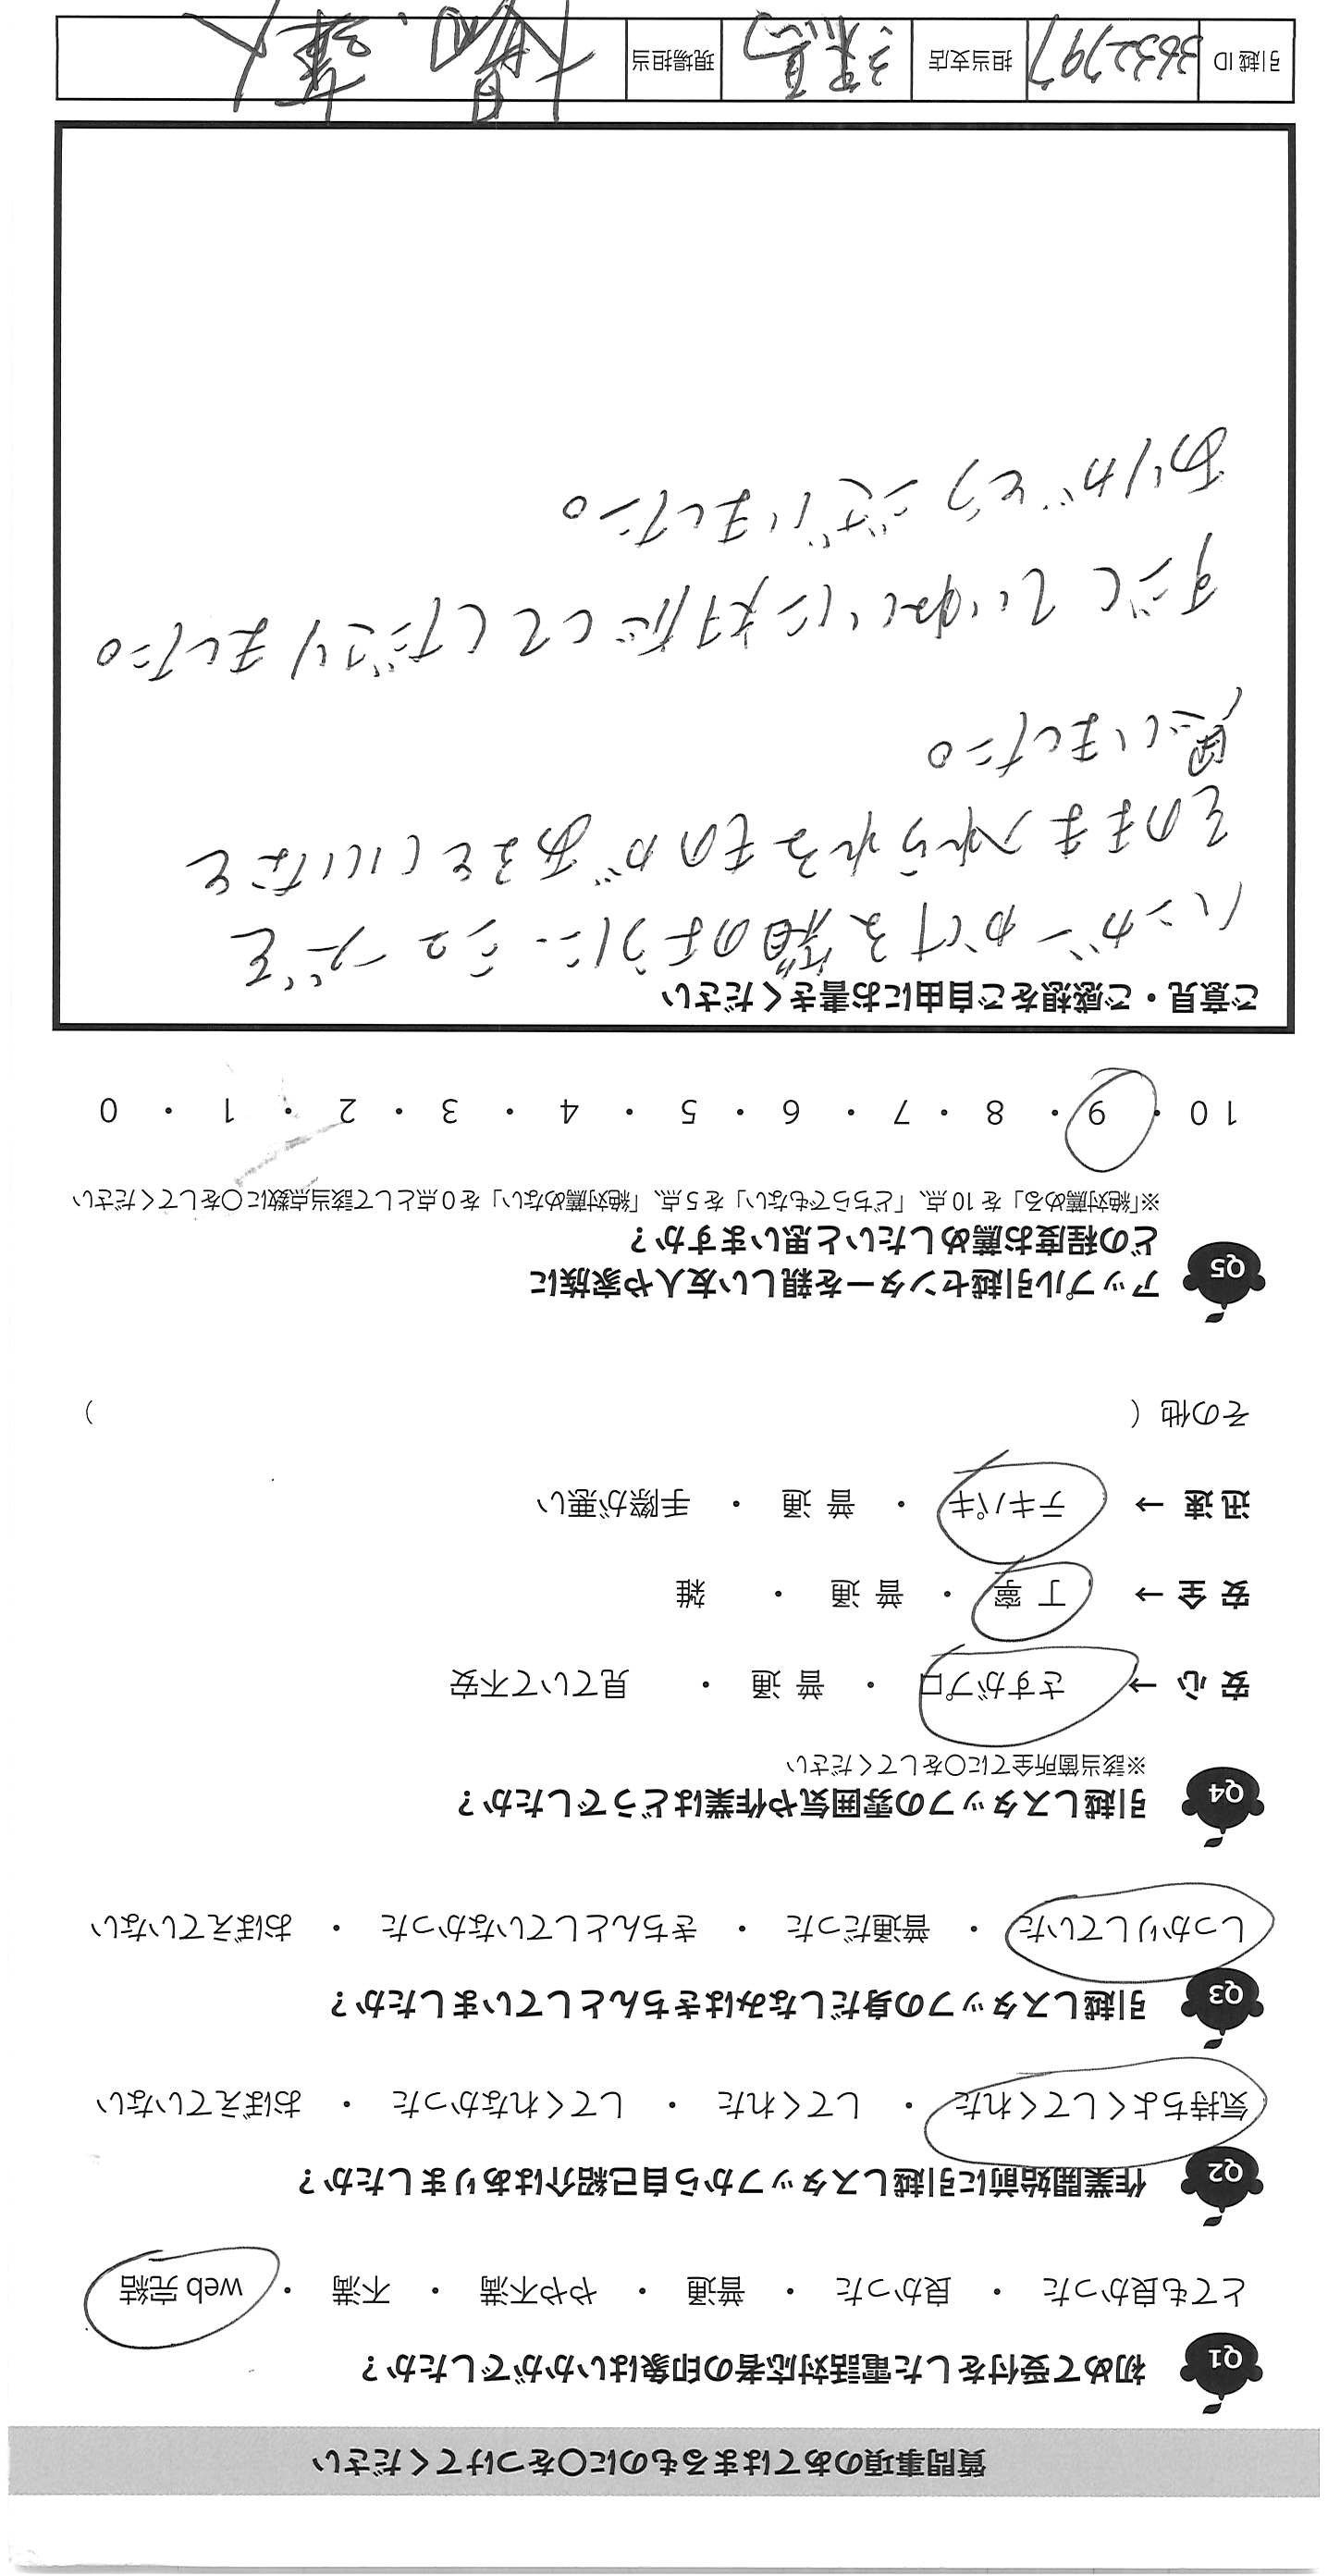 質問事項のあてはまるものに○をつけてください
Q1 初めて受付をした電話対応者の印象はいかがでしたか？
とても良かった ・ 良かった ・ 普通 ・ やや不満 ・ 不満 ・ web 完結
Q2 作業開始前に引越しスタッフから自己紹介はありましたか？
気持ちよくしてくれた ・ してくれた ・ してくれなかった ・ おぼえていない
Q3 引越しスタッフの身だしなみはきちんとしていましたか？
しっかりしていた ・ 普通だった ・ きちんとしていなかった ・ おぼえていない
Q4 引越しスタッフの雰囲気や作業はどうでしたか？
※該当箇所全てに○をしてください
安 心 → さすがプロ ・ 普 通 ・ 見ていて不安
安 全 → 丁 寧 ・ 普 通 ・ 雑
迅 速 → テキパキ ・ 普 通 ・ 手際が悪い
その他（ ）
Q5 アップル引越センターを親しい友人や家族に
どの程度お薦めしたいと思いますか？
※「絶対薦める」を 10 点、「どちらでもない」を 5 点、「絶対薦めない」を 0 点として該当点数に○をしてください
10 ・ 9 ・ 8 ・ 7 ・ 6 ・ 5 ・ 4 ・ 3 ・ 2 ・ 1 ・ 0
ご意見・ご感想をご自由にお書きください
ハンガーかける箱のように、シューズを
そのまま入れられるものがあるといいなと
思いました。
すごくていねいに対応してくださりました。
ありがとうございました。
引越 ID 3632797 担当支店 練馬 現場担当